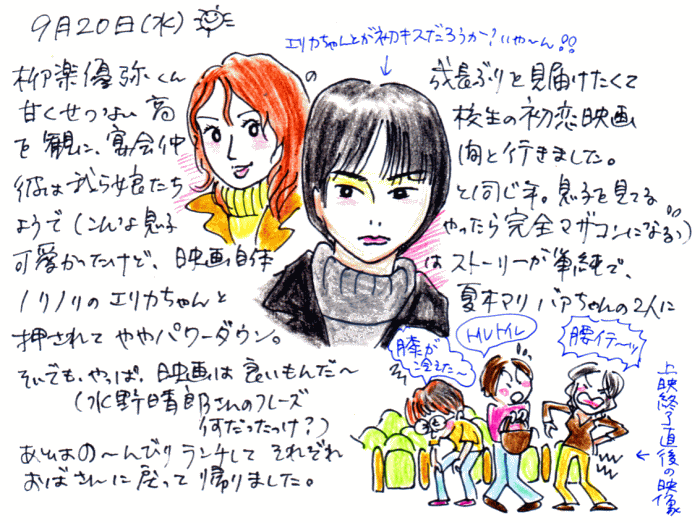 9月20日(水)
エリカちゃんとが初キスだろうか?いや〜ん!!
柳楽優弥くんの成長ぶりを見届けたくて
甘くせつない高校生の初恋映画
を観に、宴会仲間と行きました。
彼は我ら娘たちと同じ年。息子を見てる
ようで(こんな息子やったら完全マザコンになる!!)
可愛かったけど、映画自体はストーリーが単純で、
ノリノリのエリカちゃんと夏木マリバアちゃんの2人に
押されてややパワーダウン。
そいでも、やっぱ、映画は良いもんだ〜
(水野晴郎さんのフレーズ
何だったっけ?)
あとはの〜んびりランチして それぞれ
おばさんに戻って帰りました。
膝が
冷えた〜
トイレトイレ
腰イテ〜ッ
←上映終了直後の映像